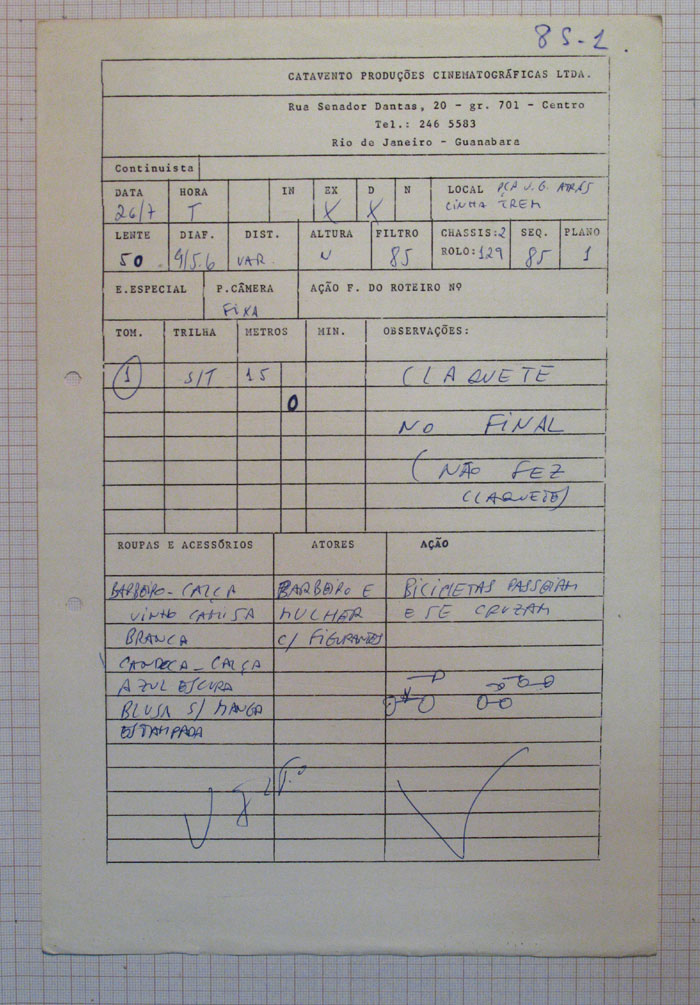 85-1
CATAVENTO PRODUÇÕES CINEMATOGRÁFICAS LTDA.
Rua Senador Dantas, 20 - gr. 701 - Centro
Tel.: 246 5583
Rio de Janeiro - Guanabara
Continuista
DATA HORA IN EX D N LOCAL PÇA V.G. ATRÁS
26/7 T X X LINHA TREM
LENTE DIAF. DIST. ALTURA FILTRO CHASSIS:2 SEQ. PLANO
50 4/5.6 VAR. N 85 ROLO:129 85 1
E.ESPECIAL P.CÂMERA AÇÃO F. DO ROTEIRO Nº
FIXA
TOM. TRILHA METROS MIN. OBSERVAÇÕES:
1 S/T 15 CLAQUETE
0
NO FINAL
(NÃO FEZ
CLAQUETE)
ROUPAS E ACESSÓRIOS ATORES AÇÃO
BARBEIRO-CALÇA BARBEIRO E BICICLETAS PASSEIAM
VINHO CAMISA MULHER E SE CRUZAM
BRANCA C/ FIGURANTES
CANDOCA-CALÇA
AZUL ESCURA
BLUSA S/ MANGA
ESTAMPADA